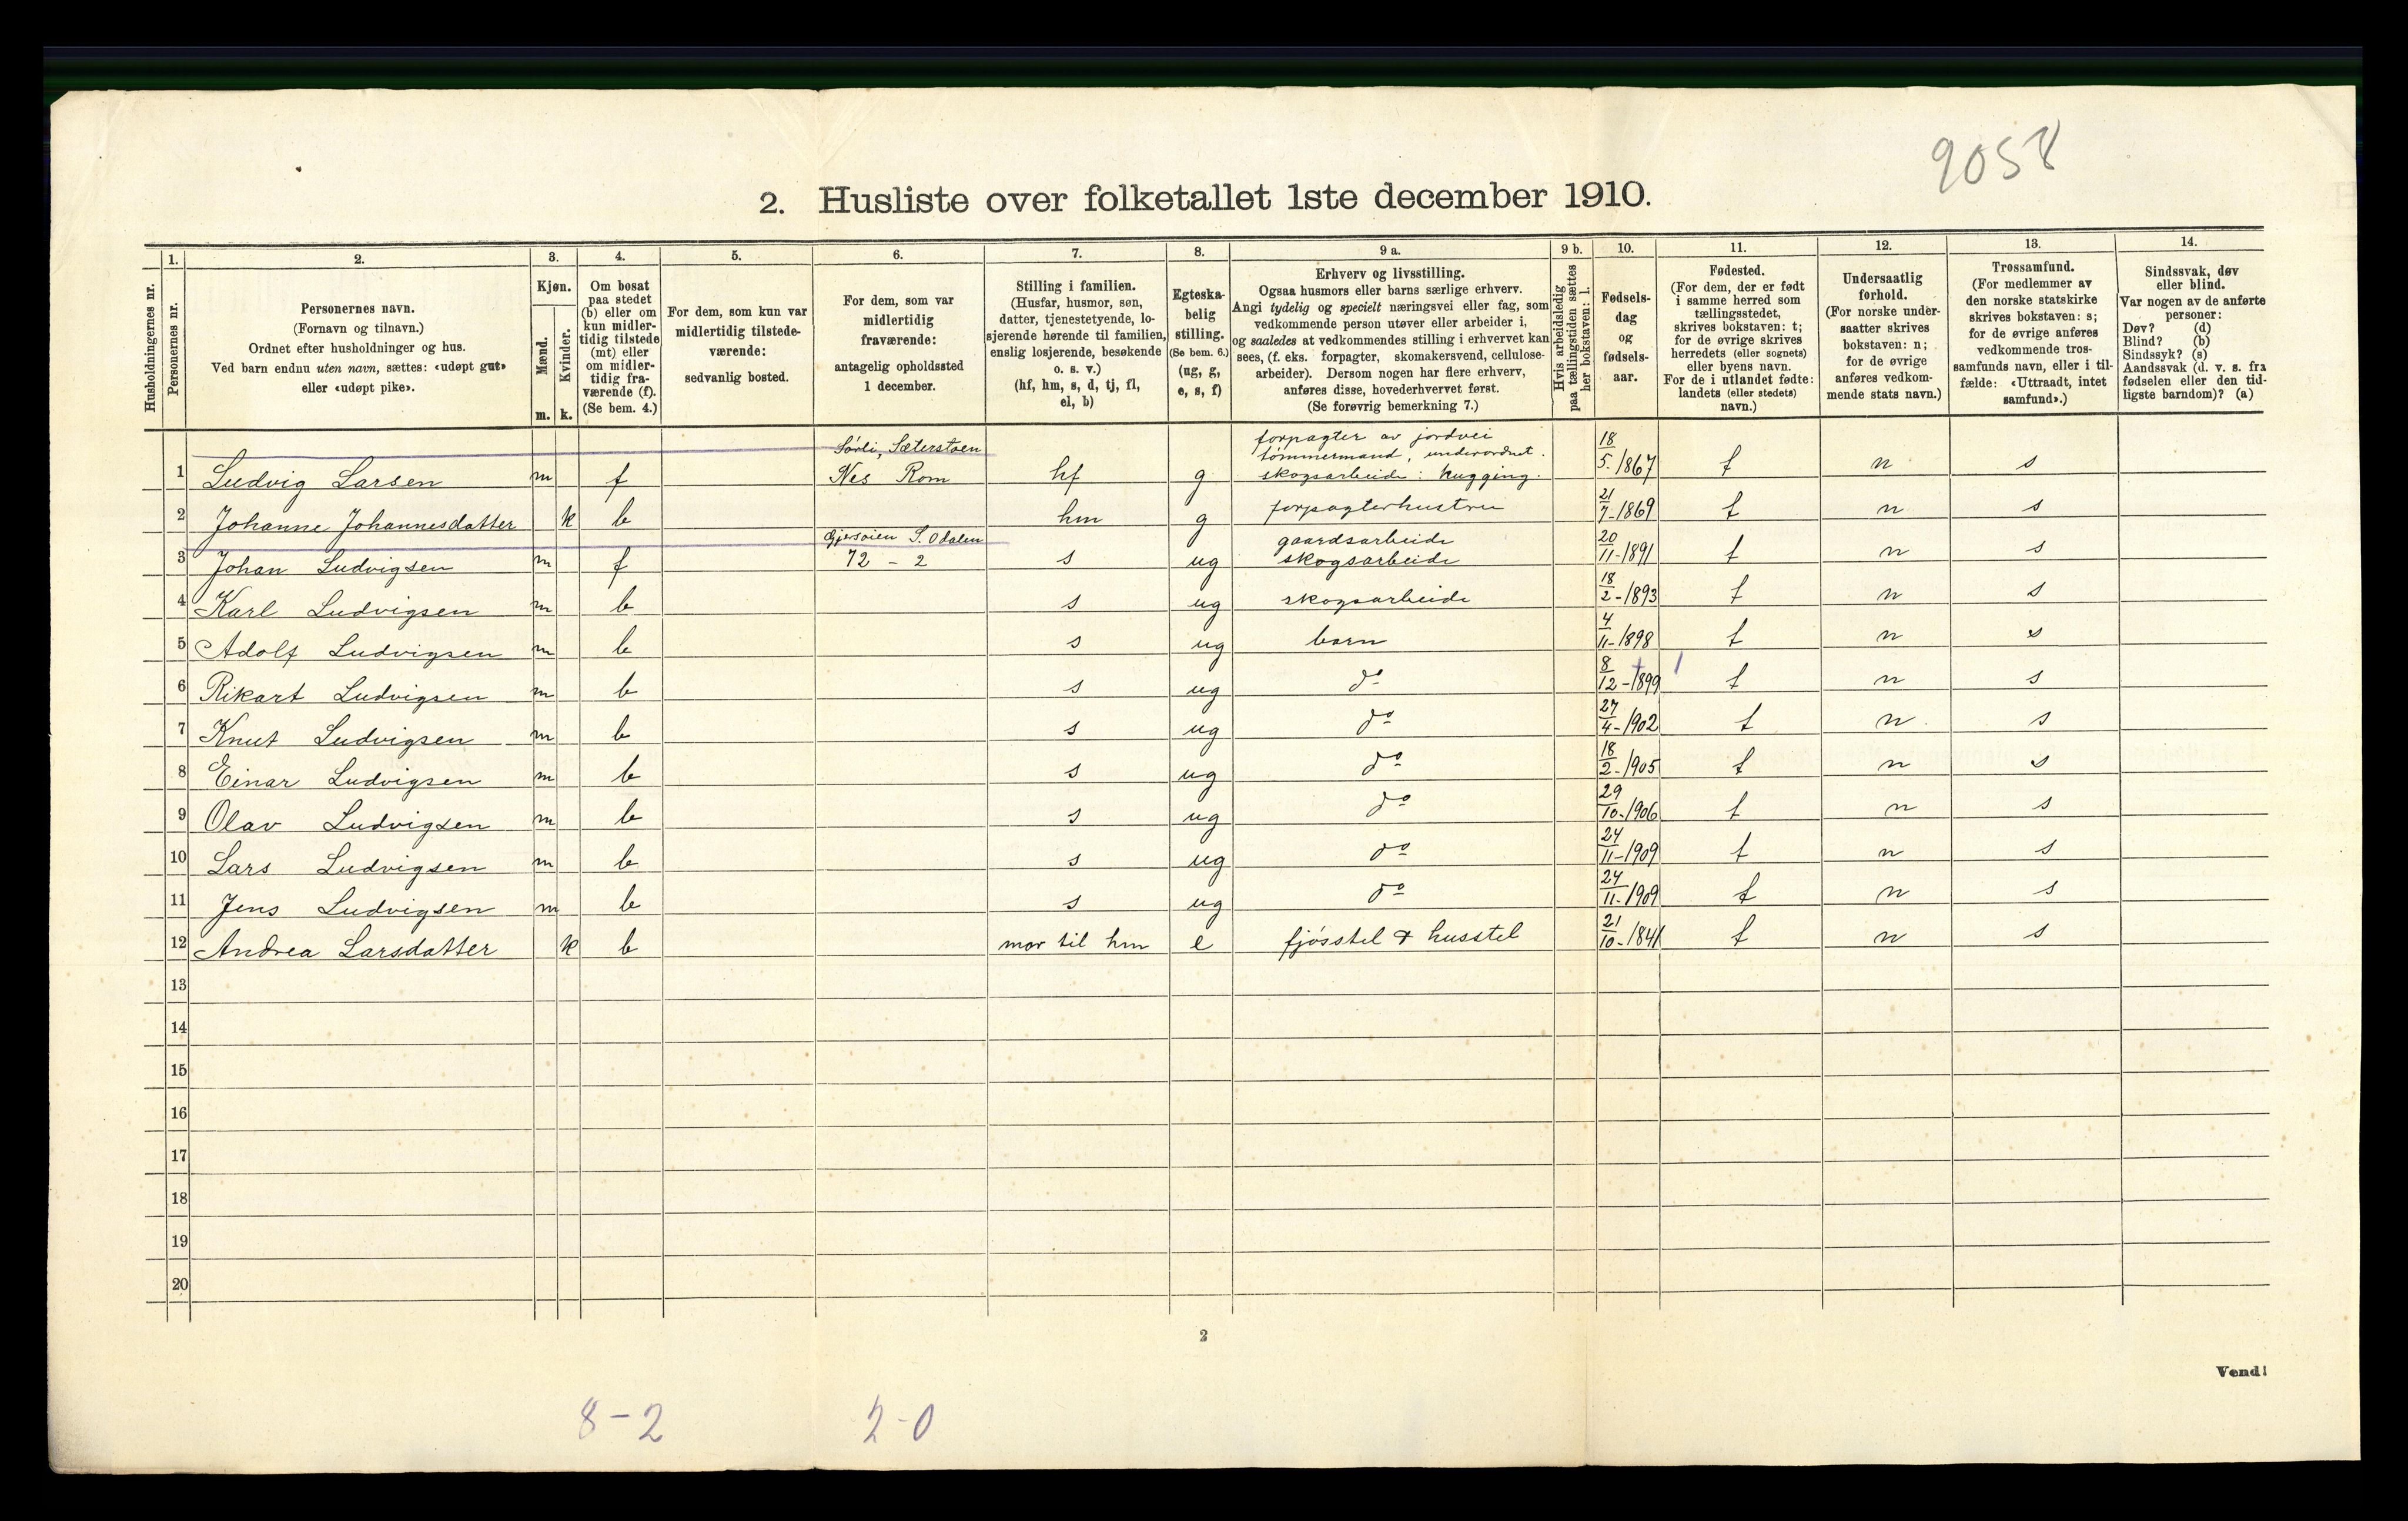 9058
2. Husliste over folketallet 1ste december 1910.
Husholdningernes nr.
1.
Personernes nr.
2.
Personernes navn.
(Fornavn og tilnavn.)
Ordnet efter husholdninger og hus.
Ved barn endnu uten navn, sættes: «udøpt gut»
eller «udøpt pike».
3.
Kjøn.
Mænd.
m.
Kvinder.
k.
4.
Om bosat
paa stedet
(b) eller om
kun midler-
tidig tilstede
(mt) eller
om midler-
tidig fra-
værende (f).
(Se bem. 4.)
5.
For dem, som kun var
midlertidig tilstede-
værende:
sedvanlig bosted.
6.
For dem, som var
midlertidig
fraværende:
antagelig opholdssted
1 december.
7.
Stilling i familien.
(Husfar, husmor, søn,
datter, tjenestetyende, lo-
sjerende hørende til familien,
enslig losjerende, besøkende
o. s. v.)
(hf, hm, s, d, tj, fl,
el, b)
8.
Egteska-
belig
stilling.
(Se bem. 6.)
(ug, g,
e, s, f)
9 a.
Erhverv og livsstilling.
Ogsaa husmors eller barns særlige erhverv.
Angi tydelig og specielt næringsvei eller fag, som
vedkommende person utøver eller arbeider i,
og saaledes at vedkommendes stilling i erhvervet kan
sees, (f. eks. forpagter, skomakersvend, cellulose-
arbeider). Dersom nogen har flere erhverv,
anføres disse, hovederhvervet først.
(Se forøvrig bemerkning 7.)
9 b.
Hvis arbeidsledig
paa tællingstiden sættes
her bokstaven: l.
10.
Fødsels-
dag
og
fødsels-
aar.
11.
Fødested.
(For dem, der er født
i samme herred som
tællingsstedet,
skrives bokstaven: t;
for de øvrige skrives
herredets (eller sognets)
eller byens navn.
For de i utlandet fødte:
landets (eller stedets)
navn.)
12.
Undersaatlig
forhold.
(For norske under-
saatter skrives
bokstaven: n;
for de øvrige
anføres vedkom-
mende stats navn.)
13.
Trossamfund.
(For medlemmer av
den norske statskirke
skrives bokstaven: s;
for de øvrige anføres
vedkommende tros-
samfunds navn, eller i til-
fælde: «Uttraadt, intet
samfund».)
14.
Sindssvak, døv
eller blind.
Var nogen av de anførte
personer:
Døv? (d)
Blind? (b)
Sindssyk? (s)
Aandssvak (d. v. s. fra
fødselen eller den tid-
ligste barndom)? (a)
Sörli, Sæterstøen forpagter av jordvei
tömmermand, underordnet.
1 Ludvig Larsen m f Nes Rom hf g skogsarbeide: hugging. 18/5-1867 t n s
2 Johanne Johannesdatter k b hm g forpagterhustru 21/7-1869 t n s
Gjersöien S. Odalen gaardsarbeide
3 Johan Ludvigsen m f 72 - 2 s ug skogsarbeide 20/11-1891 t n s
4 Karl Ludvigsen m b s ug skogsarbeide 18/2-1893 t n s
5 Adolf Ludvigsen m b s ug barn 4/11-1898 t n s
6 Rikart Ludvigsen m b s ug do 8/12-1899 t n s
7 Knut Ludvigsen m b s ug do 27/4-1902 t n s
8 Einar Ludvigsen m b s ug do 18/2-1905 t n s
9 Olav Ludvigsen m b s ug do 29/10-1906 t n s
10 Lars Ludvigsen m b s ug do 24/11-1909 t n s
11 Jens Ludvigsen m b s ug do 24/11-1909 t n s
12 Andrea Larsdatter k b mor til hm e fjösstel & husstel 21/10-1841 t n s
13
14
15
16
17
18
19
20
2
Vend!
8-2 2-0